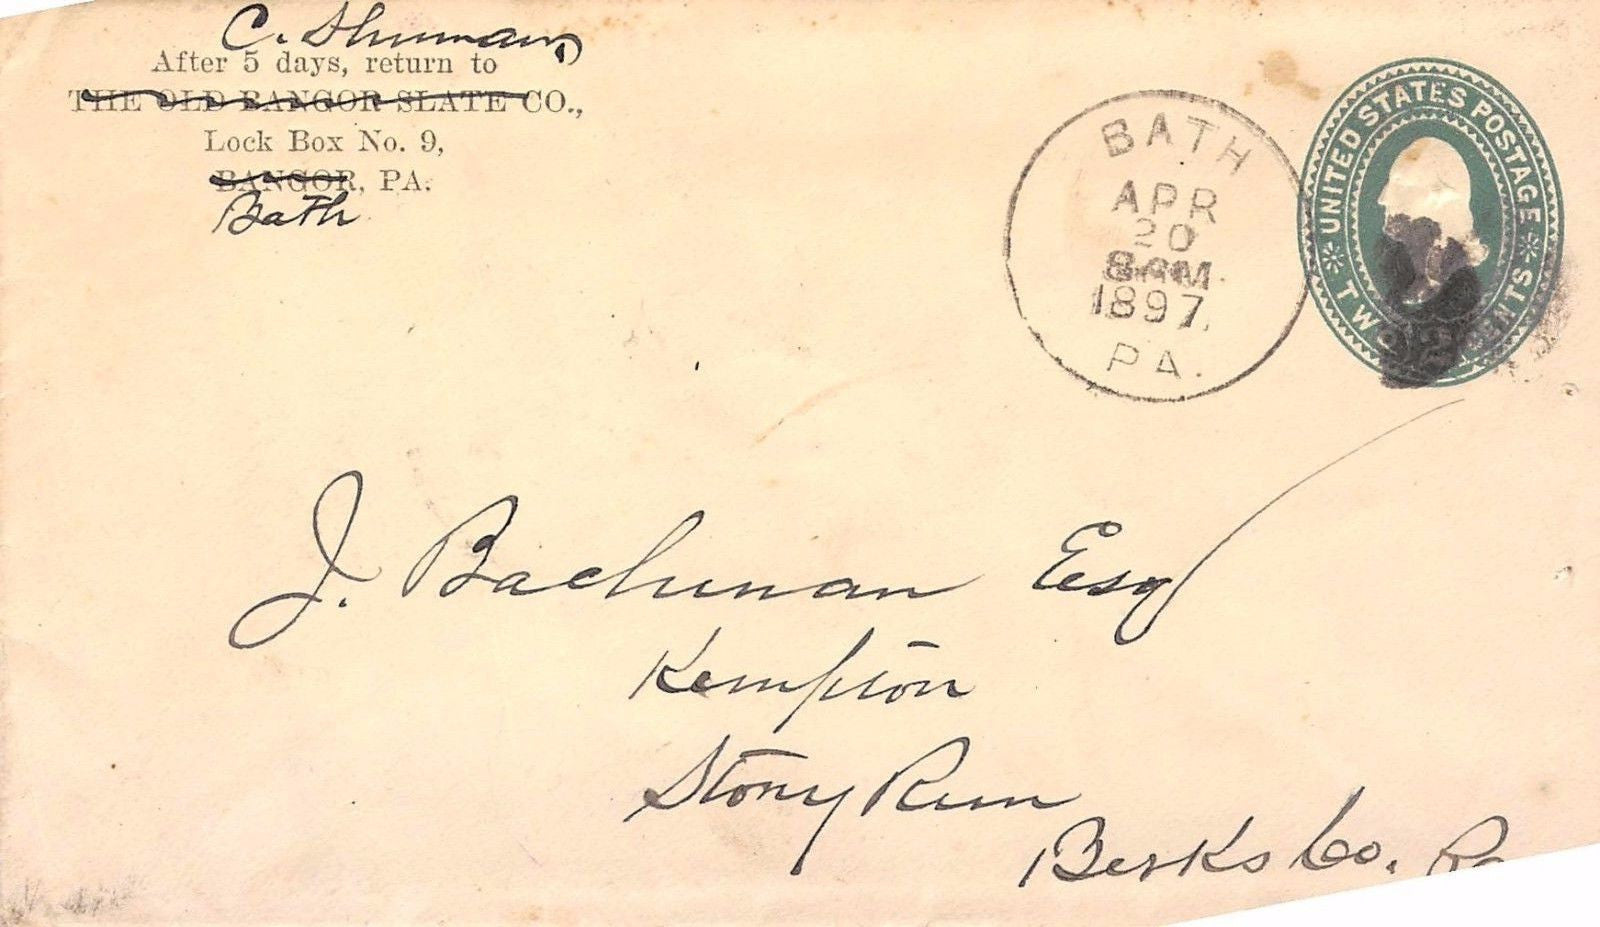 C. Shuman,
After 5 days, return to
THE OLD BANGOR SLATE CO.,
Lock Box No. 9,
BANGOR, PA.
Bath
BATH
APR
20
8 AM.
1897.
PA.
UNITED STATES POSTAGE
TWO CENTS
J. Bachman Esq
Kempton
Stony Run
Berks Co. Pa